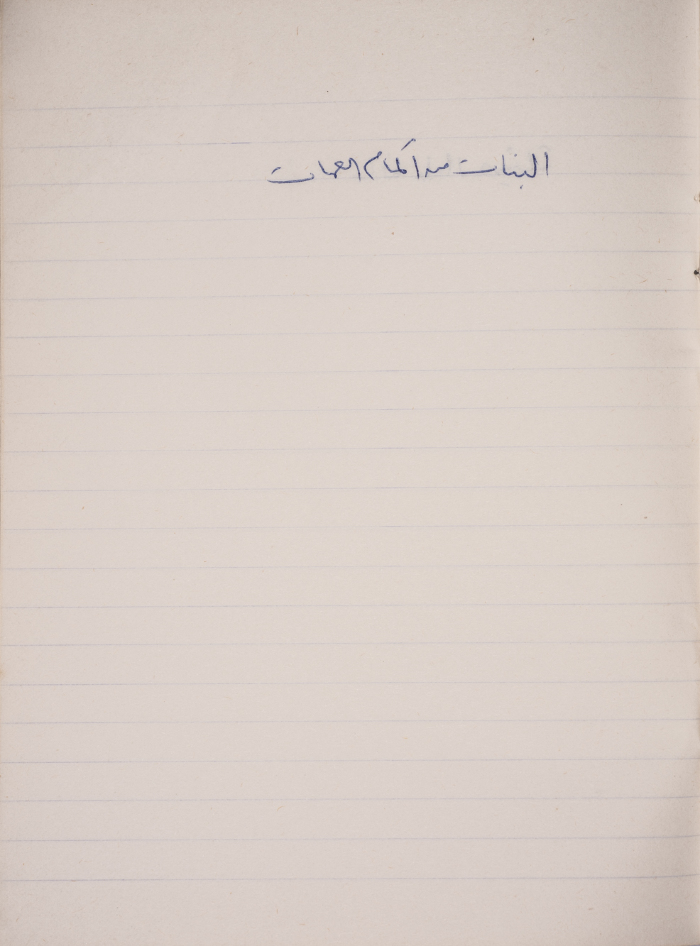 البنات من أكمام العمات